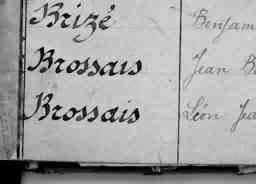 Brizé Benjam
Brossais Jean B
Brossais Léon Jea